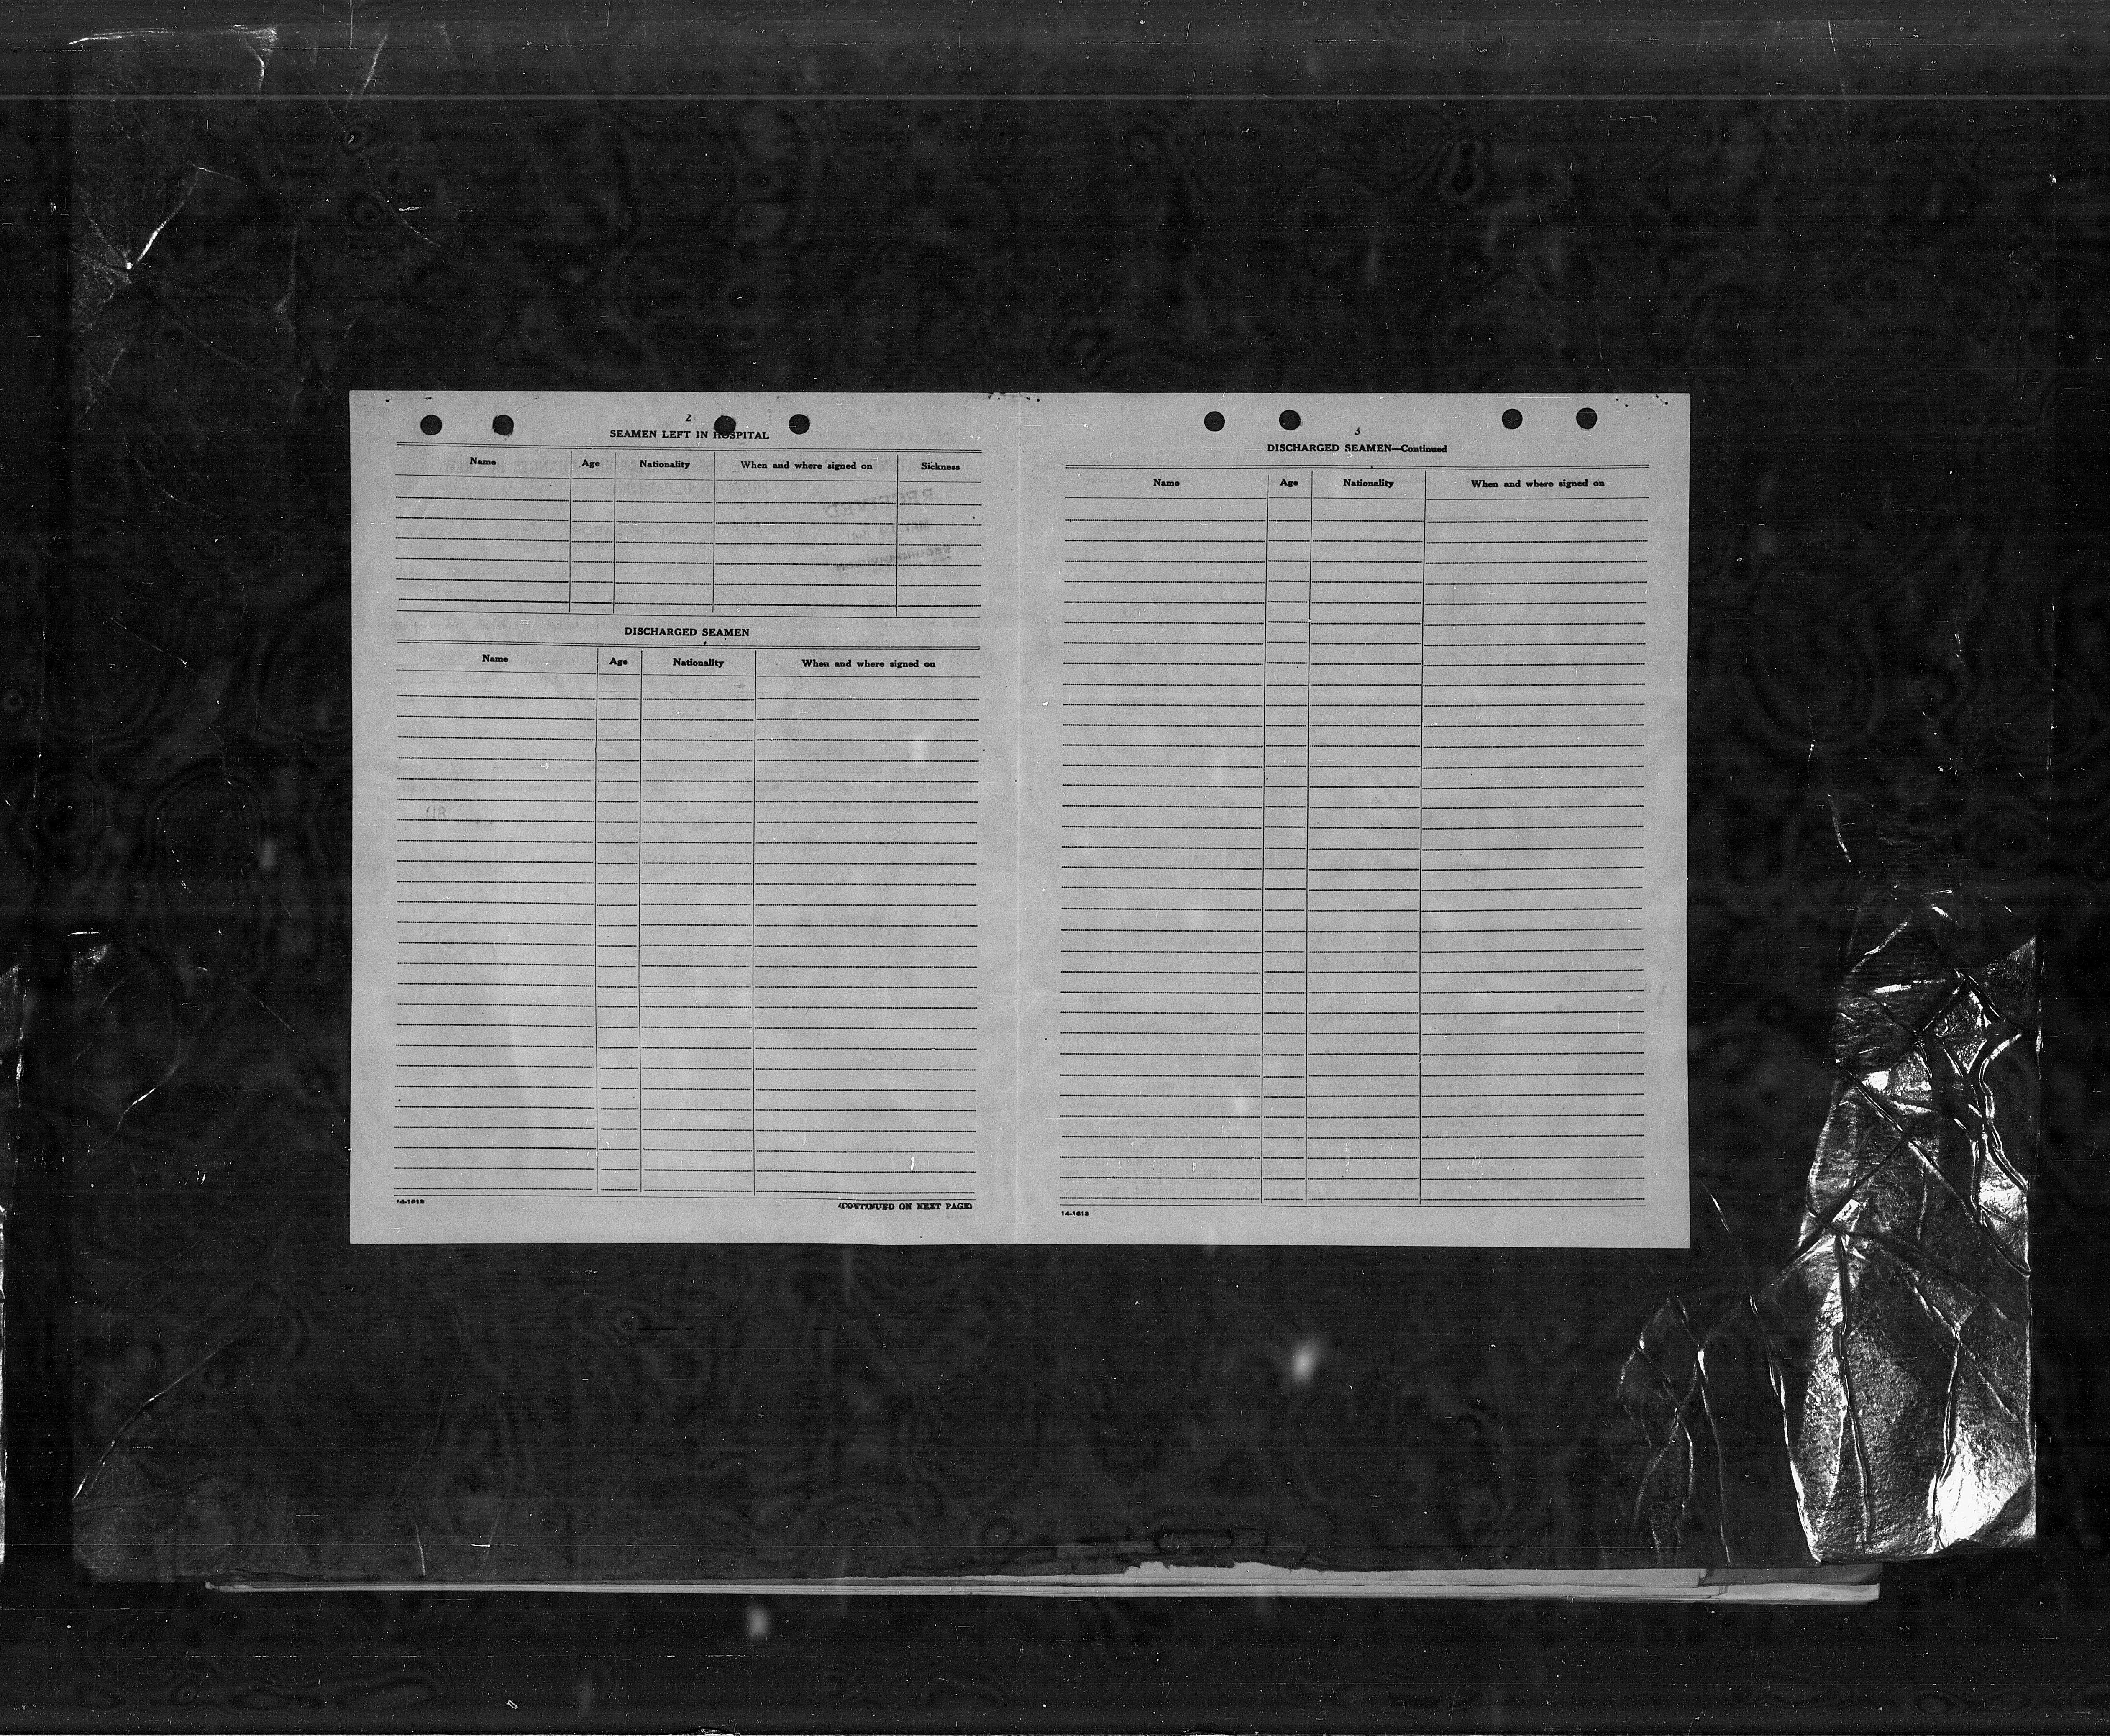 2
SEAMEN LEFT IN HOSPITAL
Name Age Nationality When and where signed on Sickness
DISCHARGED SEAMEN
Name Age Nationality When and where signed on
(CONTINUED ON NEXT PAGE)
3
DISCHARGED SEAMEN—Continued
Name Age Nationality When and where signed on